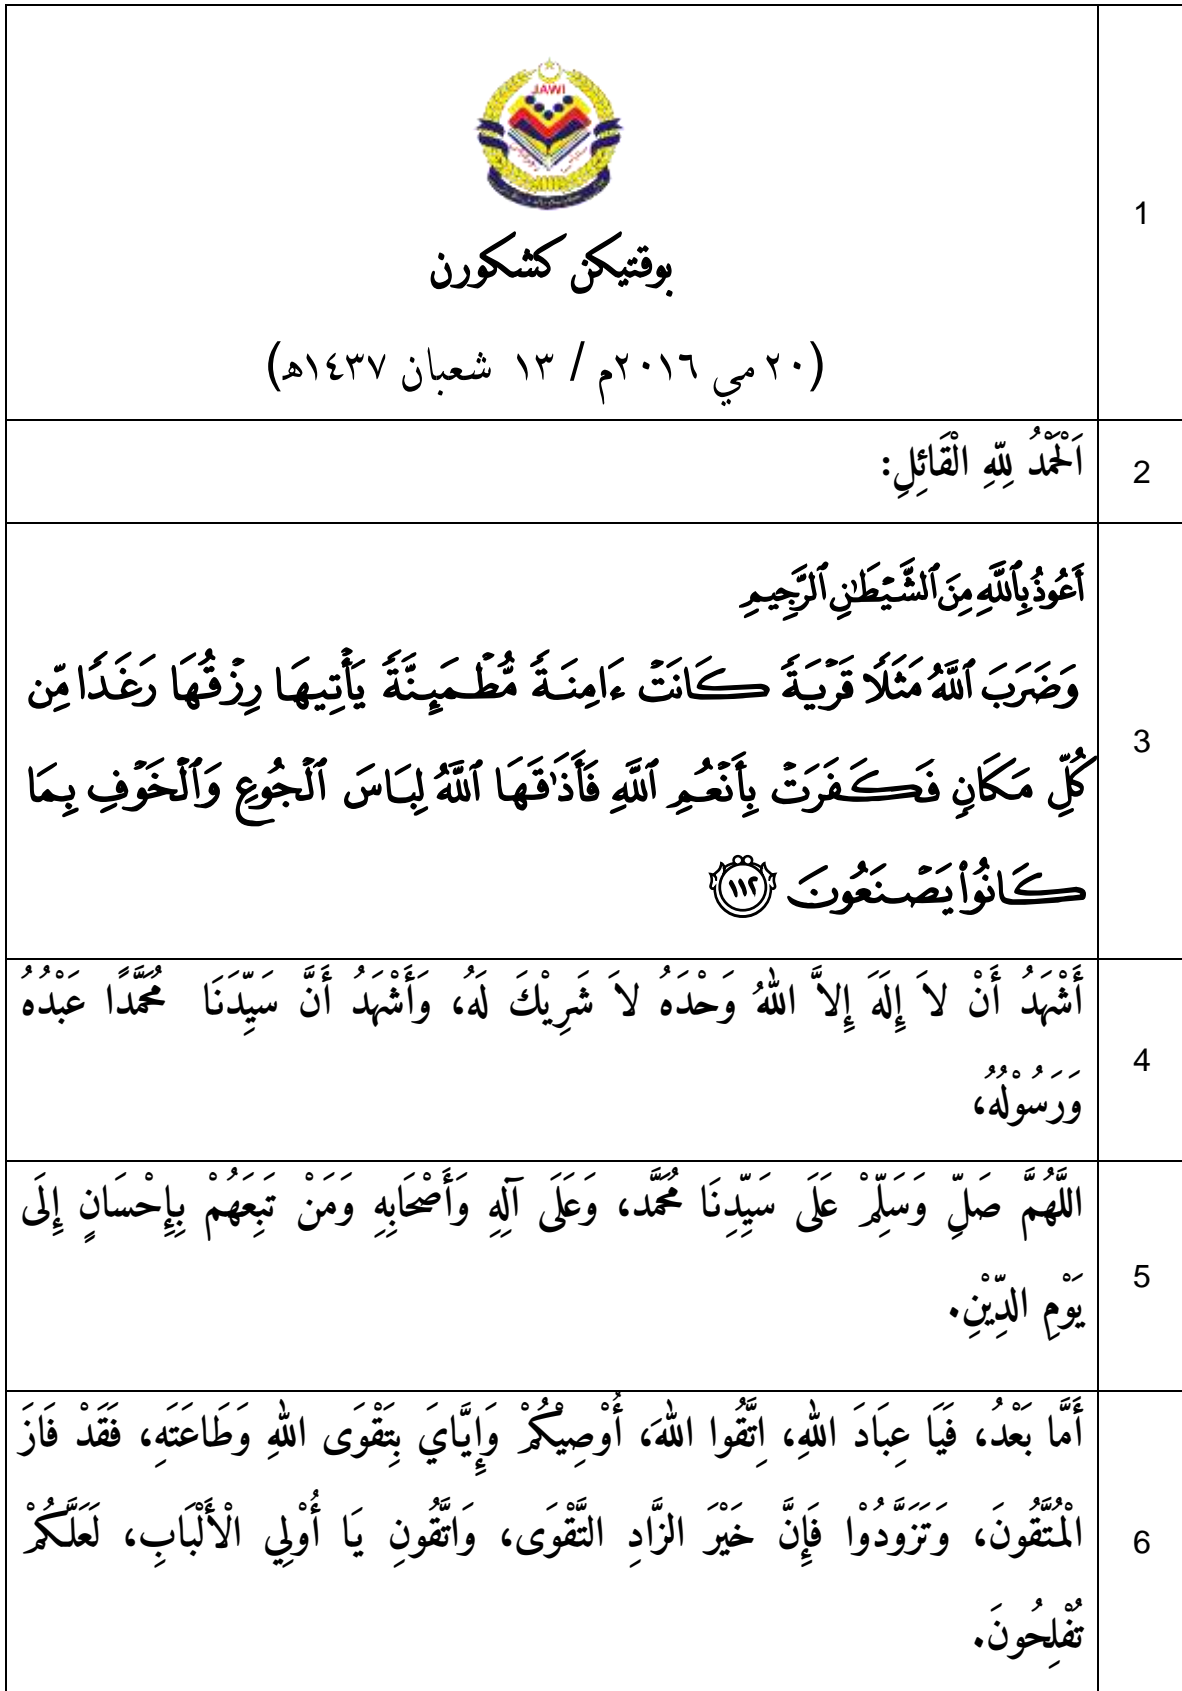 JAWI
بوقتيكن كشكورن
(٢٠ مي ٢٠١٦م / ١٣ شعبان ١٤٣٧ه)
1
اَلْحَمْدُ لِلّٰهِ الْقَائِلِ:
2
أَعُوذُ بِٱللَّهِ مِنَ ٱلشَّيْطَٰنِ ٱلرَّجِيمِ
وَضَرَبَ ٱللَّهُ مَثَلًا قَرْيَةً كَانَتْ ءَامِنَةً مُّطْمَئِنَّةً يَأْتِيهَا رِزْقُهَا رَغَدًا مِّن
كُلِّ مَكَانٍ فَكَفَرَتْ بِأَنْعُمِ ٱللَّهِ فَأَذَٰقَهَا ٱللَّهُ لِبَاسَ ٱلْجُوعِ وَٱلْخَوْفِ بِمَا
كَانُوا۟ يَصْنَعُونَ ١١٢
3
أَشْهَدُ أَنْ لاَ إِلَهَ إِلاَّ اللهُ وَحْدَهُ لاَ شَرِيْكَ لَهُ، وَأَشْهَدُ أَنَّ سَيِّدَنَا مُحَمَّدًا عَبْدُهُ
وَرَسُوْلُهُ،
4
اللَّهُمَّ صَلِّ وَسَلِّمْ عَلَى سَيِّدِنَا مُحَمَّد، وَعَلَى آلِهِ وَأَصْحَابِهِ وَمَنْ تَبِعَهُمْ بِإِحْسَانٍ إِلَى
يَوْمِ الدِّيْنِ.
5
أَمَّا بَعْدُ، فَيَا عِبَادَ اللهِ، اِتَّقُوا اللهَ، أُوْصِيْكُمْ وَإِيَّايَ بِتَقْوَى اللهِ وَطَاعَتَهِ، فَقَدْ فَازَ
الْمُتَّقُونَ، وَتَزَوَّدُوْا فَإِنَّ خَيْرَ الزَّادِ التَّقْوَى، وَاتَّقُونِ يَا أُوْلِي الْأَلْبَابِ، لَعَلَّكُمْ
تُفْلِحُونَ.
6